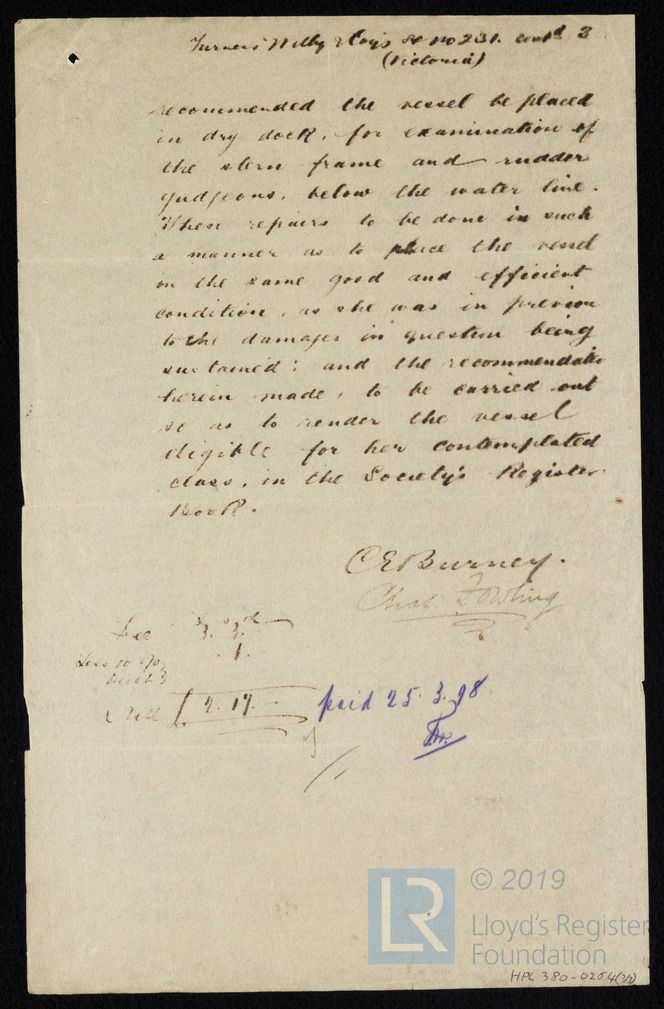 Turner's Withy & Coy's No 231. contd 3
(Victoria)
recommended the vessel be placed
in dry dock, for examination of
the stern frame and rudder
gudgeons, below the water line.
These repairs to be done in such
a manner as to place the vessel
in the same good and efficient
condition, as she was in previous
to the damages in question being
sustained: and the recommendation
herein made, to be carried out
so as to render the vessel
eligible for her contemplated
class, in the Society's Register
Book.
C E Burney.
Chas Fowling
Fee 3. 3.
Less 10 %
Nett 2. 17. paid 25. 3. 98
© 2019
LR
Lloyd's Register
Foundation
HPL 380-0254(3/3)